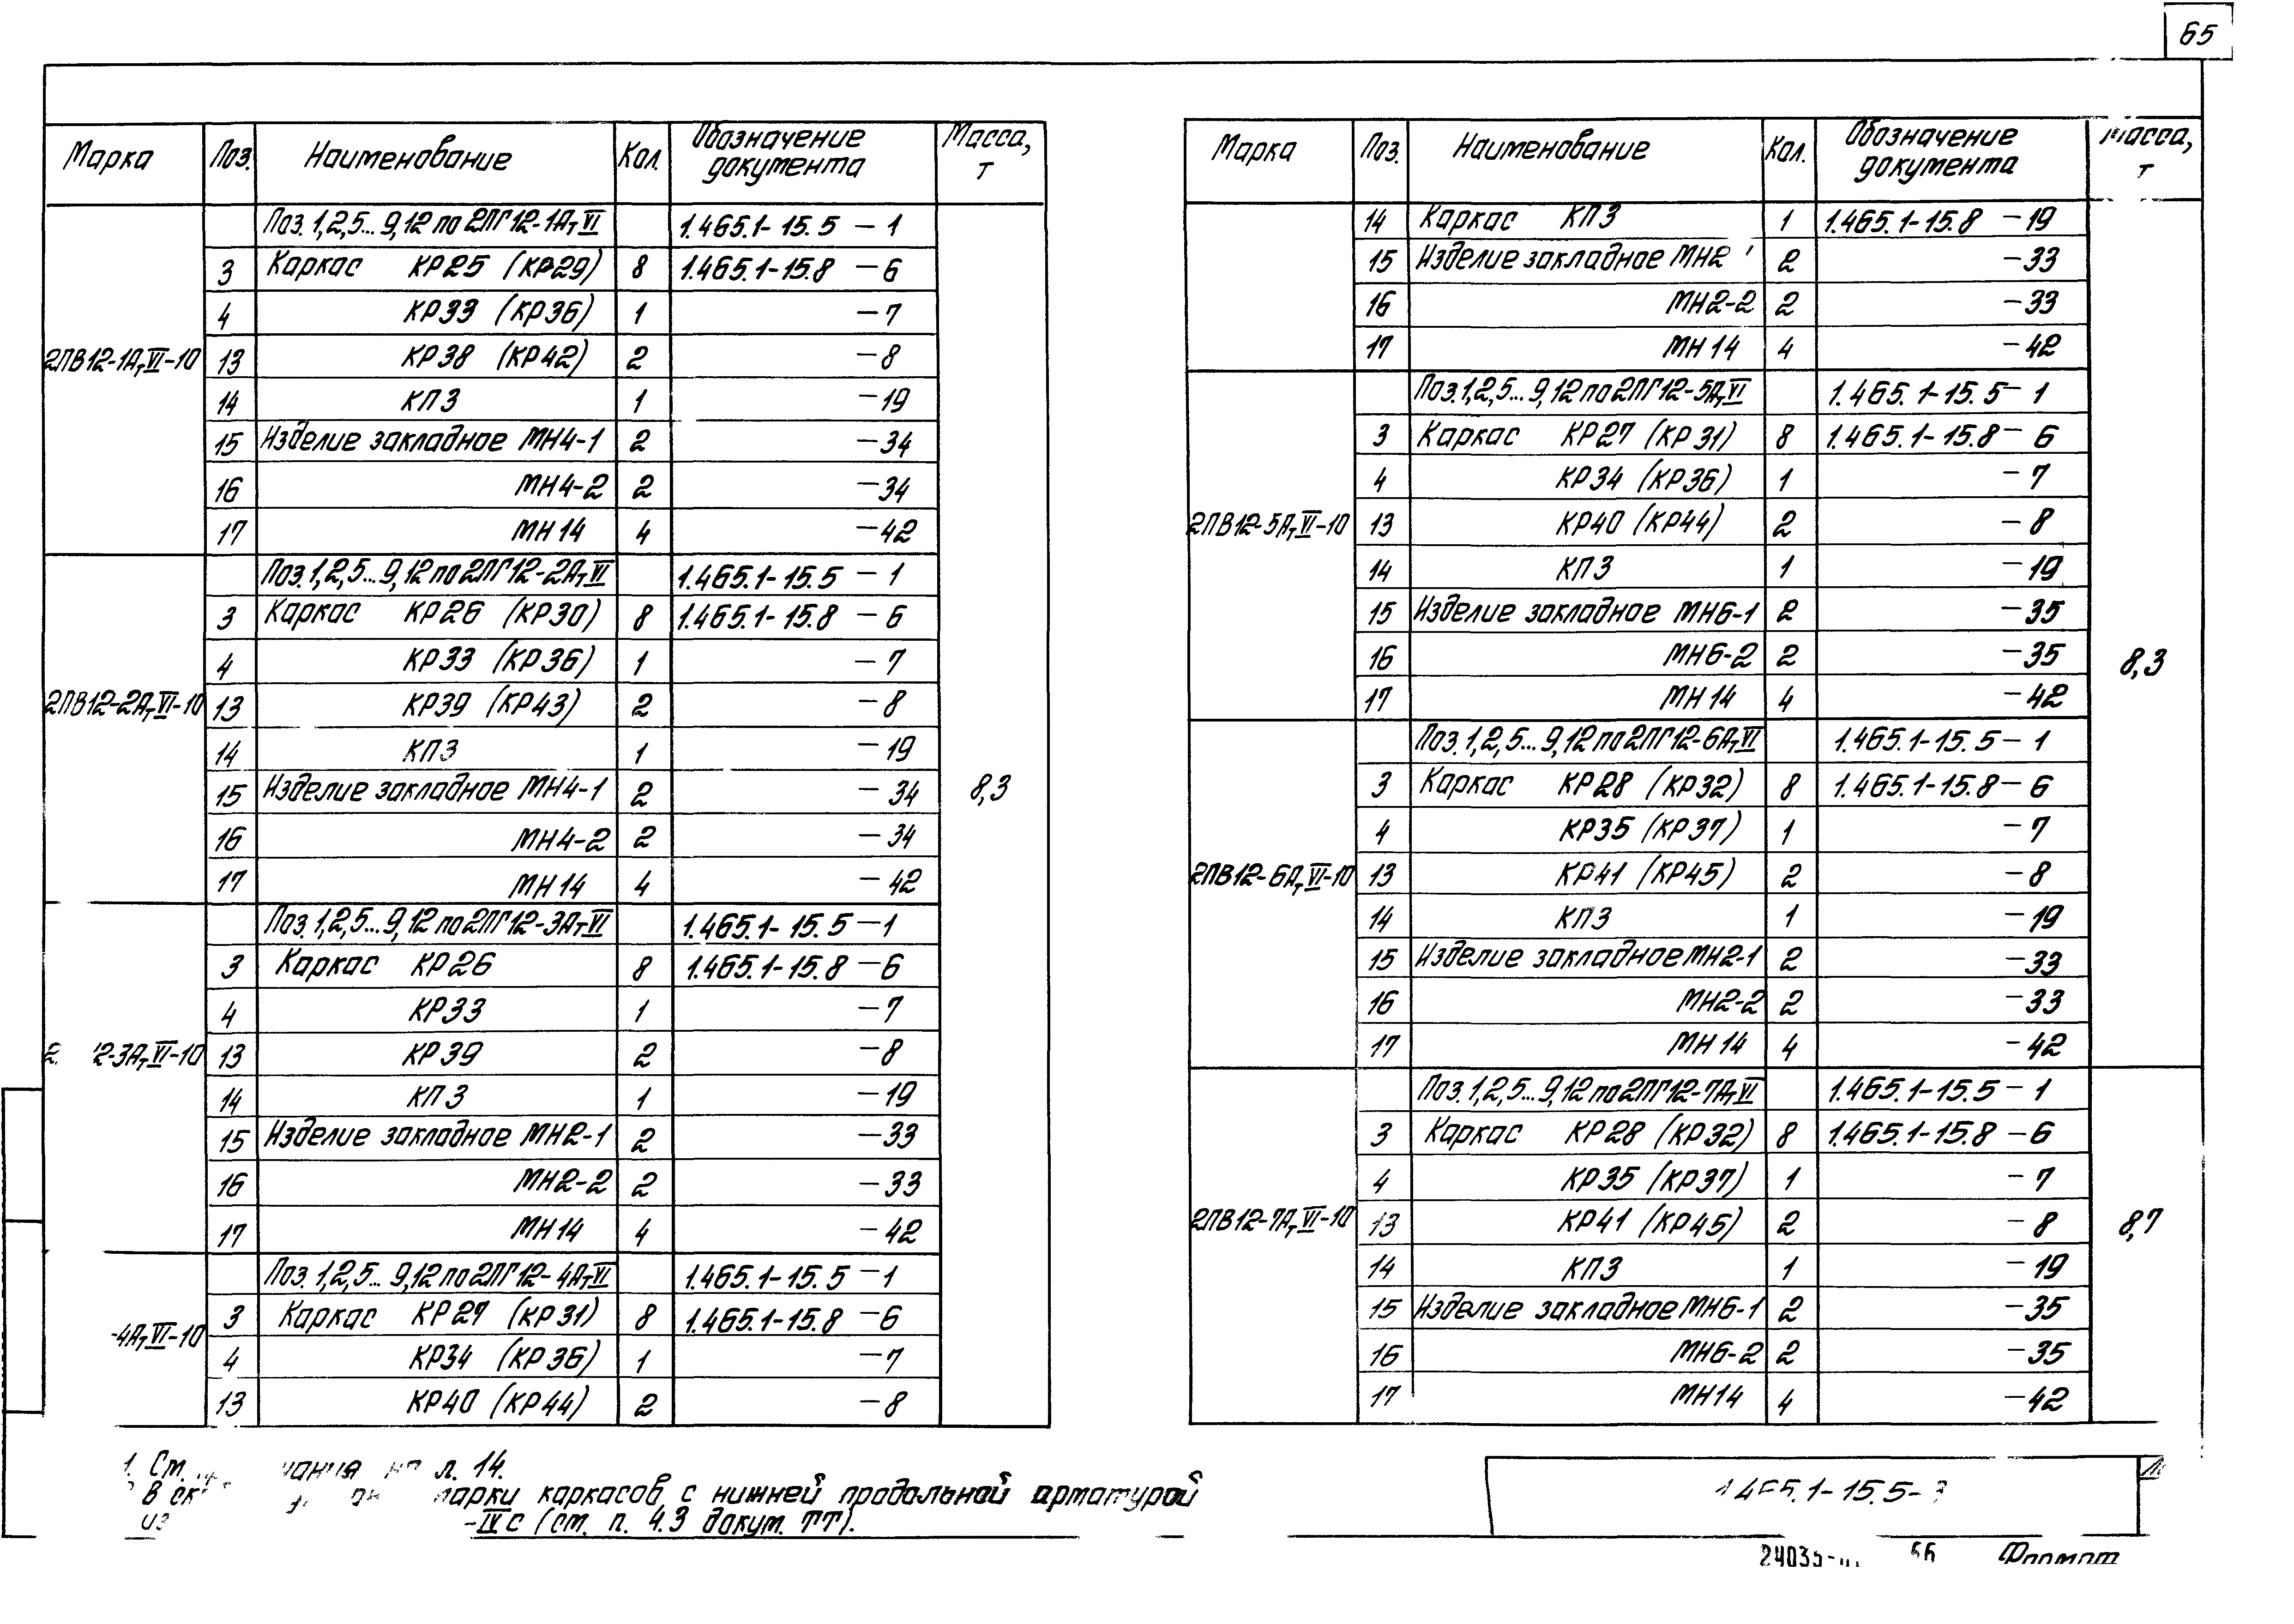 65
Марка Поз. Наименование Кол. Обозначение документа Масса, т
Поз. 1,2,5...9,12 по 2ПГ12-1АтVI 1.465.1-15.5 -1
3 Каркас КР25 (КР29) 8 1.465.1-15.8 -6
4 КР33 (КР36) 1 -7
2ПВ12-1АтVI-10 13 КР38 (КР42) 2 -8
14 КП3 1 -19
15 Изделие закладное МН4-1 2 -34
16 МН4-2 2 -34
17 МН14 4 -42
Поз. 1,2,5...9,12 по 2ПГ12-2АтVI 1.465.1-15.5 -1
3 Каркас КР26 (КР30) 8 1.465.1-15.8 -6
4 КР33 (КР36) 1 -7
2ПВ12-2АтVI-10 13 КР39 (КР43) 2 -8
14 КП3 1 -19
15 Изделие закладное МН4-1 2 -34 8,3
16 МН4-2 2 -34
17 МН14 4 -42
Поз. 1,2,5...9,12 по 2ПГ12-3АтVI 1.465.1-15.5 -1
3 Каркас КР26 8 1.465.1-15.8 -6
4 КР33 1 -7
2-3АтVI-10 13 КР39 2 -8
14 КП3 1 -19
15 Изделие закладное МН2-1 2 -33
16 МН2-2 2 -33
17 МН14 4 -42
Поз. 1,2,5...9,12 по 2ПГ12-4АтVI 1.465.1-15.5 -1
3 Каркас КР27 (КР31) 8 1.465.1-15.8 -6
-4АтVI-10 4 КР34 (КР36) 1 -7
13 КР40 (КР44) 2 -8
Марка Поз. Наименование Кол. Обозначение документа Масса, т
14 Каркас КП3 1 1.465.1-15.8 -19
15 Изделие закладное МН2 2 -33
16 МН2-2 2 -33
17 МН14 4 -42
Поз. 1,2,5...9,12 по 2ПГ12-5АтVI 1.465.1-15.5 -1
3 Каркас КР27 (КР31) 8 1.465.1-15.8 -6
4 КР34 (КР36) 1 -7
2ПВ12-5АтVI-10 13 КР40 (КР44) 2 -8
14 КП3 1 -19
15 Изделие закладное МН6-1 2 -35
16 МН6-2 2 -35 8,3
17 МН14 4 -42
Поз. 1,2,5...9,12 по 2ПГ12-6АтVI 1.465.1-15.5 -1
3 Каркас КР28 (КР32) 8 1.465.1-15.8 -6
4 КР35 (КР37) 1 -7
2ПВ12-6АтVI-10 13 КР41 (КР45) 2 -8
14 КП3 1 -19
15 Изделие закладное МН2-1 2 -33
16 МН2-2 2 -33
17 МН14 4 -42
Поз. 1,2,5...9,12 по 2ПГ12-7АтVI 1.465.1-15.5 -1
3 Каркас КР28 (КР32) 8 1.465.1-15.8 -6
4 КР35 (КР37) 1 -7
2ПВ12-7АтVI-10 13 КР41 (КР45) 2 -8 8,7
14 КП3 1 -19
15 Изделие закладное МН6-1 2 -35
16 МН6-2 2 -35
17 МН14 4 -42
1. См. л. 14.
В марки каркасов с нижней продольной арматурой
из -IVс (см. п. 4.3 докум. ТТ).
1.465.1-15.5-3
24035- 66 Формат